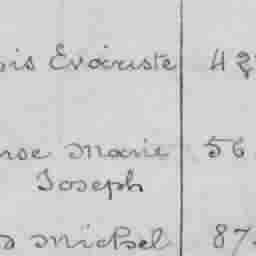 is Évariste 42
rse Marie 56
Joseph
s Michel 87